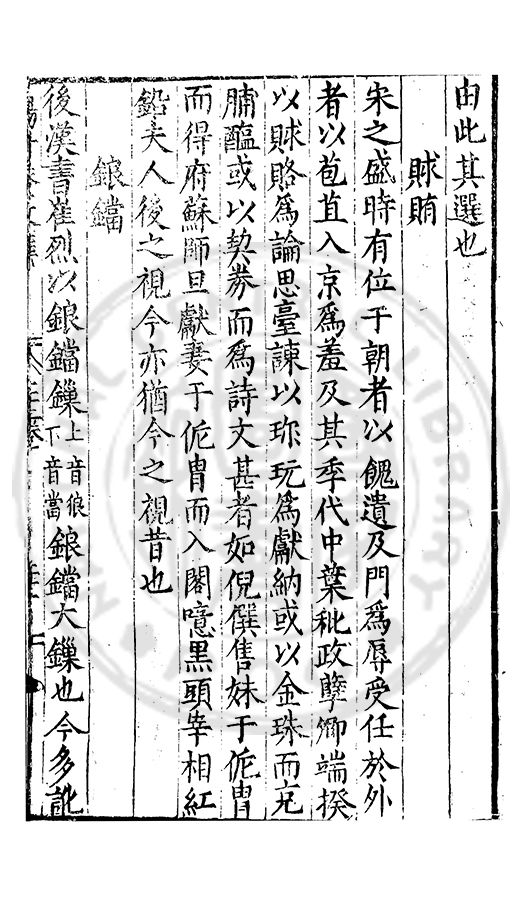 由此其選也
賕賄
宋之盛時有位于朝者以餽遺及門爲辱受任於外
者以苞苴入京爲羞及其季代中葉秕政孽卿端揆
以賕賂爲論思臺諫以珎玩爲獻納或以金珠而充
脯醢或以契券而爲詩文甚者如倪僎售妹于侂胄
而得府蘇師旦獻妻于侂胄而入閣噫黒頭宰相紅
鉛夫人後之視今亦猶今之視昔也
鋃鐺
後漢書崔烈以鋃鐺鏁上音狼下音當鋃鐺大鏁也今多訛